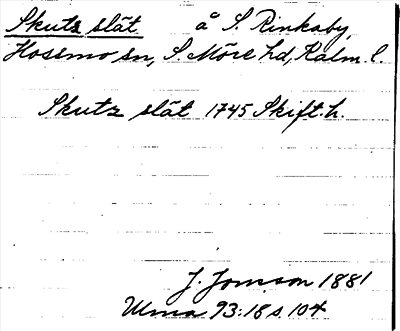 Skutz slät å S. Rinkaby,
Hossmo sn, S. Möre hd, Kalm. l.
Skutz slät 1745 Skift. h.
J. Jonsson 1881
Ulma 93:18 s. 104